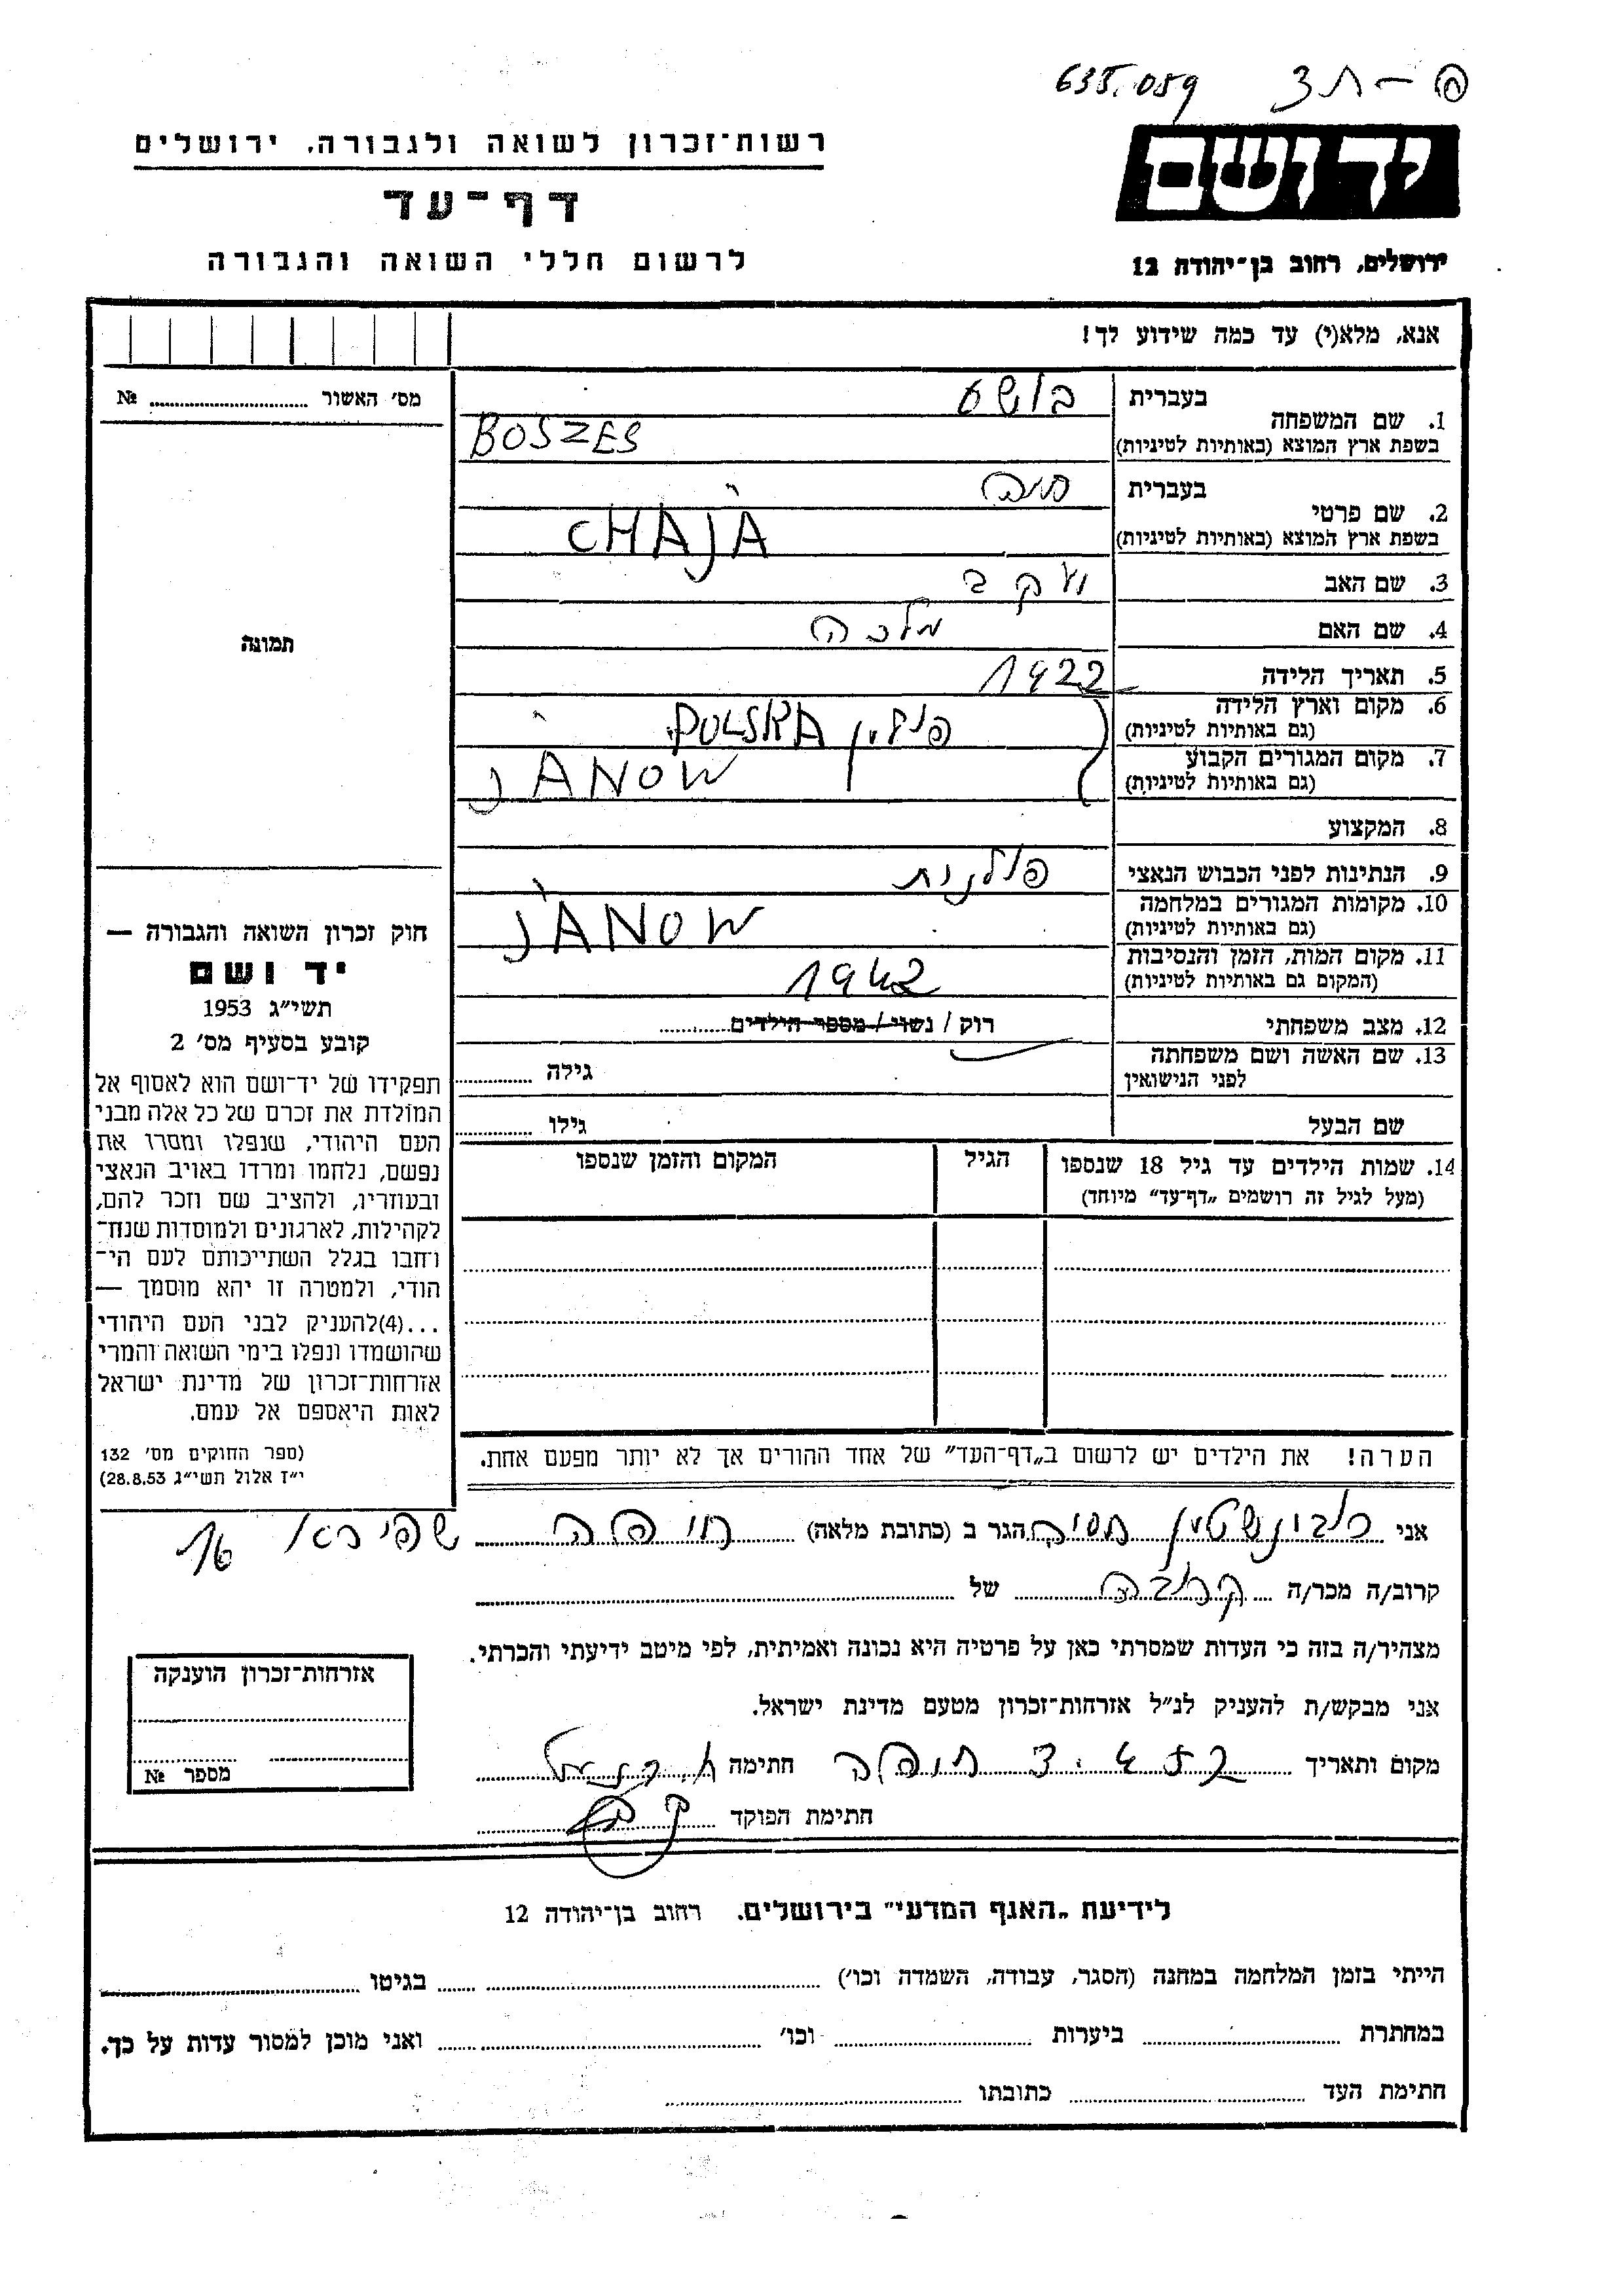 635.059
רשות־זכרון לשואה ולגבורה, ירושלים
יד ושם
דף־עד
לרשום חללי השואה והגבורה
ירושלים, רחוב בן־יהודה 12
אנא, מלא(י) עד כמה שידוע לך!
מס׳ האשור № 
1. שם המשפחה
בעברית
בשפת ארץ המוצא (באותיות לטיניות) BOSZES
2. שם פרטי
בעברית חיה
בשפת ארץ המוצא (באותיות לטיניות) CHAJA
תמונה
3. שם האב יעקב
4. שם האם מלכה
5. תאריך הלידה 1922
6. מקום וארץ הלידה
(גם באותיות לטיניות) פולין POLSKA
7. מקום המגורים הקבוע
(גם באותיות לטיניות) JANOW
8. המקצוע
9. הנתינות לפני הכבוש הנאצי פולנית
10. מקומות המגורים במלחמה
(גם באותיות לטיניות) JANOW
11. מקום המות, הזמן והנסיבות
(המקום גם באותיות לטיניות) 1942
12. מצב משפחתי רוק / נשוי / מספר הילדים
13. שם האשה ושם משפחתה
לפני הנישואין גילה
שם הבעל גילו
14. שמות הילדים עד גיל 18 שנספו
(מעל לגיל זה רושמים „דף־עד״ מיוחד)
הגיל
המקום והזמן שנספו
חוק זכרון השואה והגבורה —
יד ושם
תשי״ג 1953
קובע בסעיף מס׳ 2
תפקידו של יד־ושם הוא לאסוף אל
המולדת את זכרם של כל אלה מבני
העם היהודי, שנפלו ומסרו את
נפשם, נלחמו ומרדו באויב הנאצי
ובעוזריו, ולהציב שם וזכר להם,
לקהילות, לארגונים ולמוסדות שנח־
רחבו בגלל השתייכותם לעם הי־
הודי, ולמטרה זו יהא מוסמך —
...(4)להעניק לבני העם היהודי
שהושמדו ונפלו בימי השואה והמרי
אזרחות־זכרון של מדינת ישראל
לאות היאספם אל עמם.
(ספר החוקים מס׳ 132
י״ז אלול תשי״ג 28.8.53)
הערה! את הילדים יש לרשום ב„דף־העד״ של אחד ההורים אך לא יותר מפעם אחת.
אני הגר ב (כתובת מלאה) חיפה שפירא 16
קרוב/ה מכר/ה קרובה של
מצהיר/ה בזה כי העדות שמסרתי כאן על פרטיה היא נכונה ואמיתית, לפי מיטב ידיעתי והכרתי.
אני מבקש/ת להעניק לנ״ל אזרחות־זכרון מטעם מדינת ישראל.
מקום ותאריך חיפה חתימה
חתימת הפוקד
אזרחות־זכרון הוענקה
מספר №
לידיעת „האגף המדעי״ בירושלים. רחוב בן־יהודה 12
הייתי בזמן המלחמה במחנה (הסגר, עבודה, השמדה וכו׳) בגיטו
במחתרת ביערות וכו׳ ואני מוכן למסור עדות על כך.
חתימת העד כתובתו